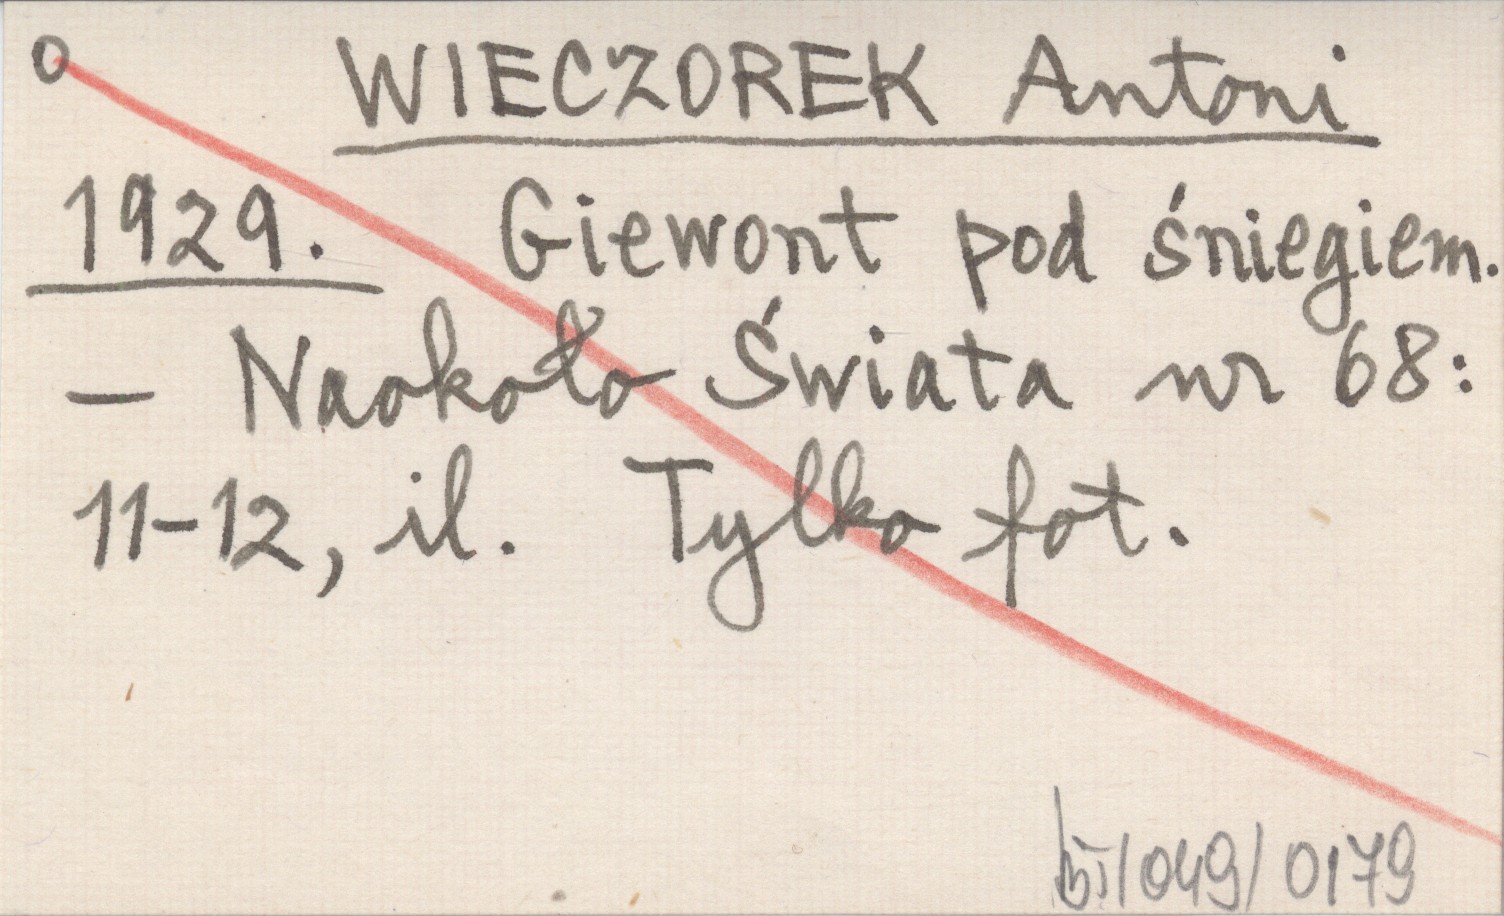 O
WIECZOREK Antoni
1929. Giewont pod śniegiem.
— Naokoło Świata nr 68:
11-12, il. Tylko fot.
/049/0179